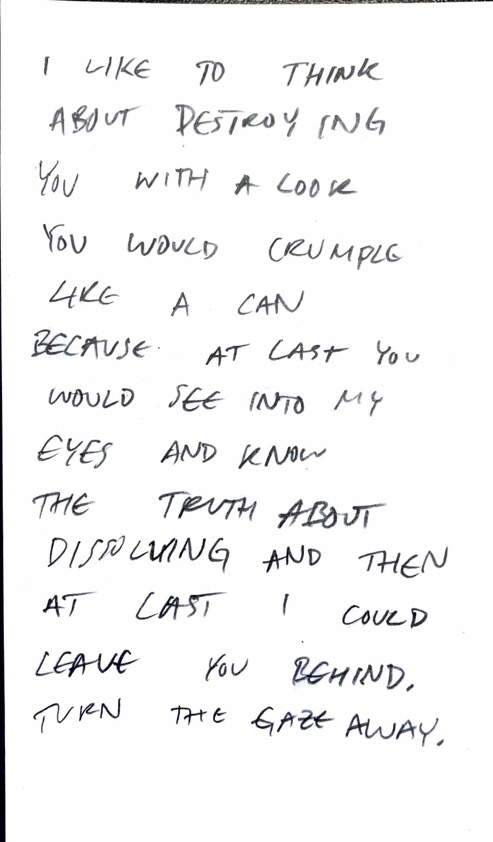 I LIKE TO THINK
ABOUT DESTROYING
YOU WITH A LOOK
YOU WOULD CRUMPLE
LIKE A CAN
BECAUSE. AT LAST YOU
WOULD SEE INTO MY
EYES AND KNOW
THE TRUTH ABOUT
DISSOLVING AND THEN
AT LAST I COULD
LEAVE YOU BEHIND.
TURN THE GAZE AWAY.